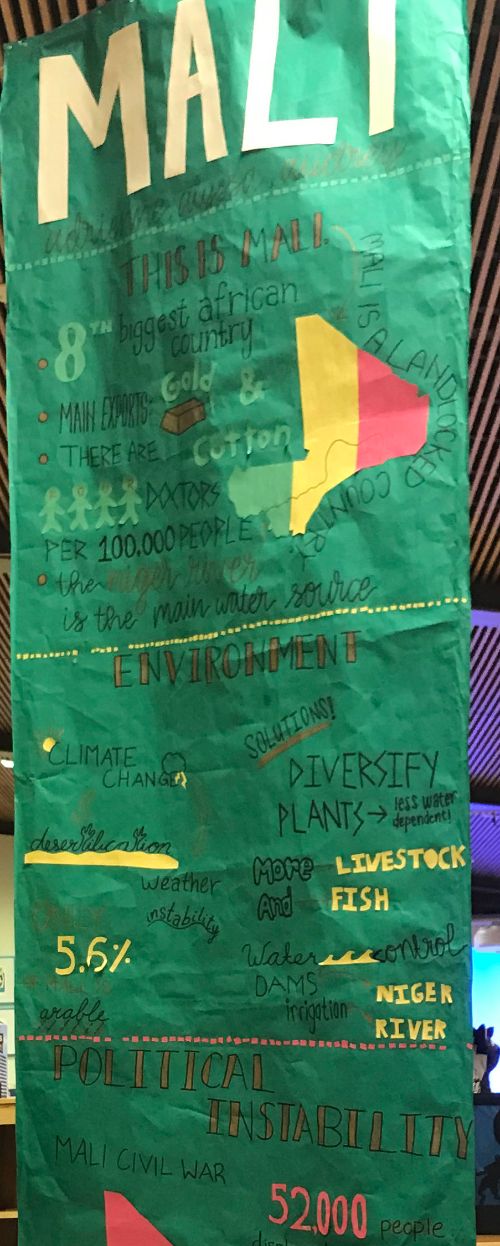 MALI
THIS IS MALI.
8TH biggest african
country
MALI IS A LANDLOCKED COUNTRY.
MAIN EXPORTS: Gold &
cotton
THERE ARE
DOCTORS
PER 100.000 PEOPLE
the niger river
is the main water source
ENVIRONMENT
CLIMATE
CHANGE
desertification
weather
instability
5.6%
arable
SOLUTIONS!
DIVERSIFY
PLANTS → less water
dependent!
More LIVESTOCK
And FISH
Water control
DAMS
irrigation
NIGER
RIVER
POLITICAL
INSTABILITY
MALI CIVIL WAR
52,000 people